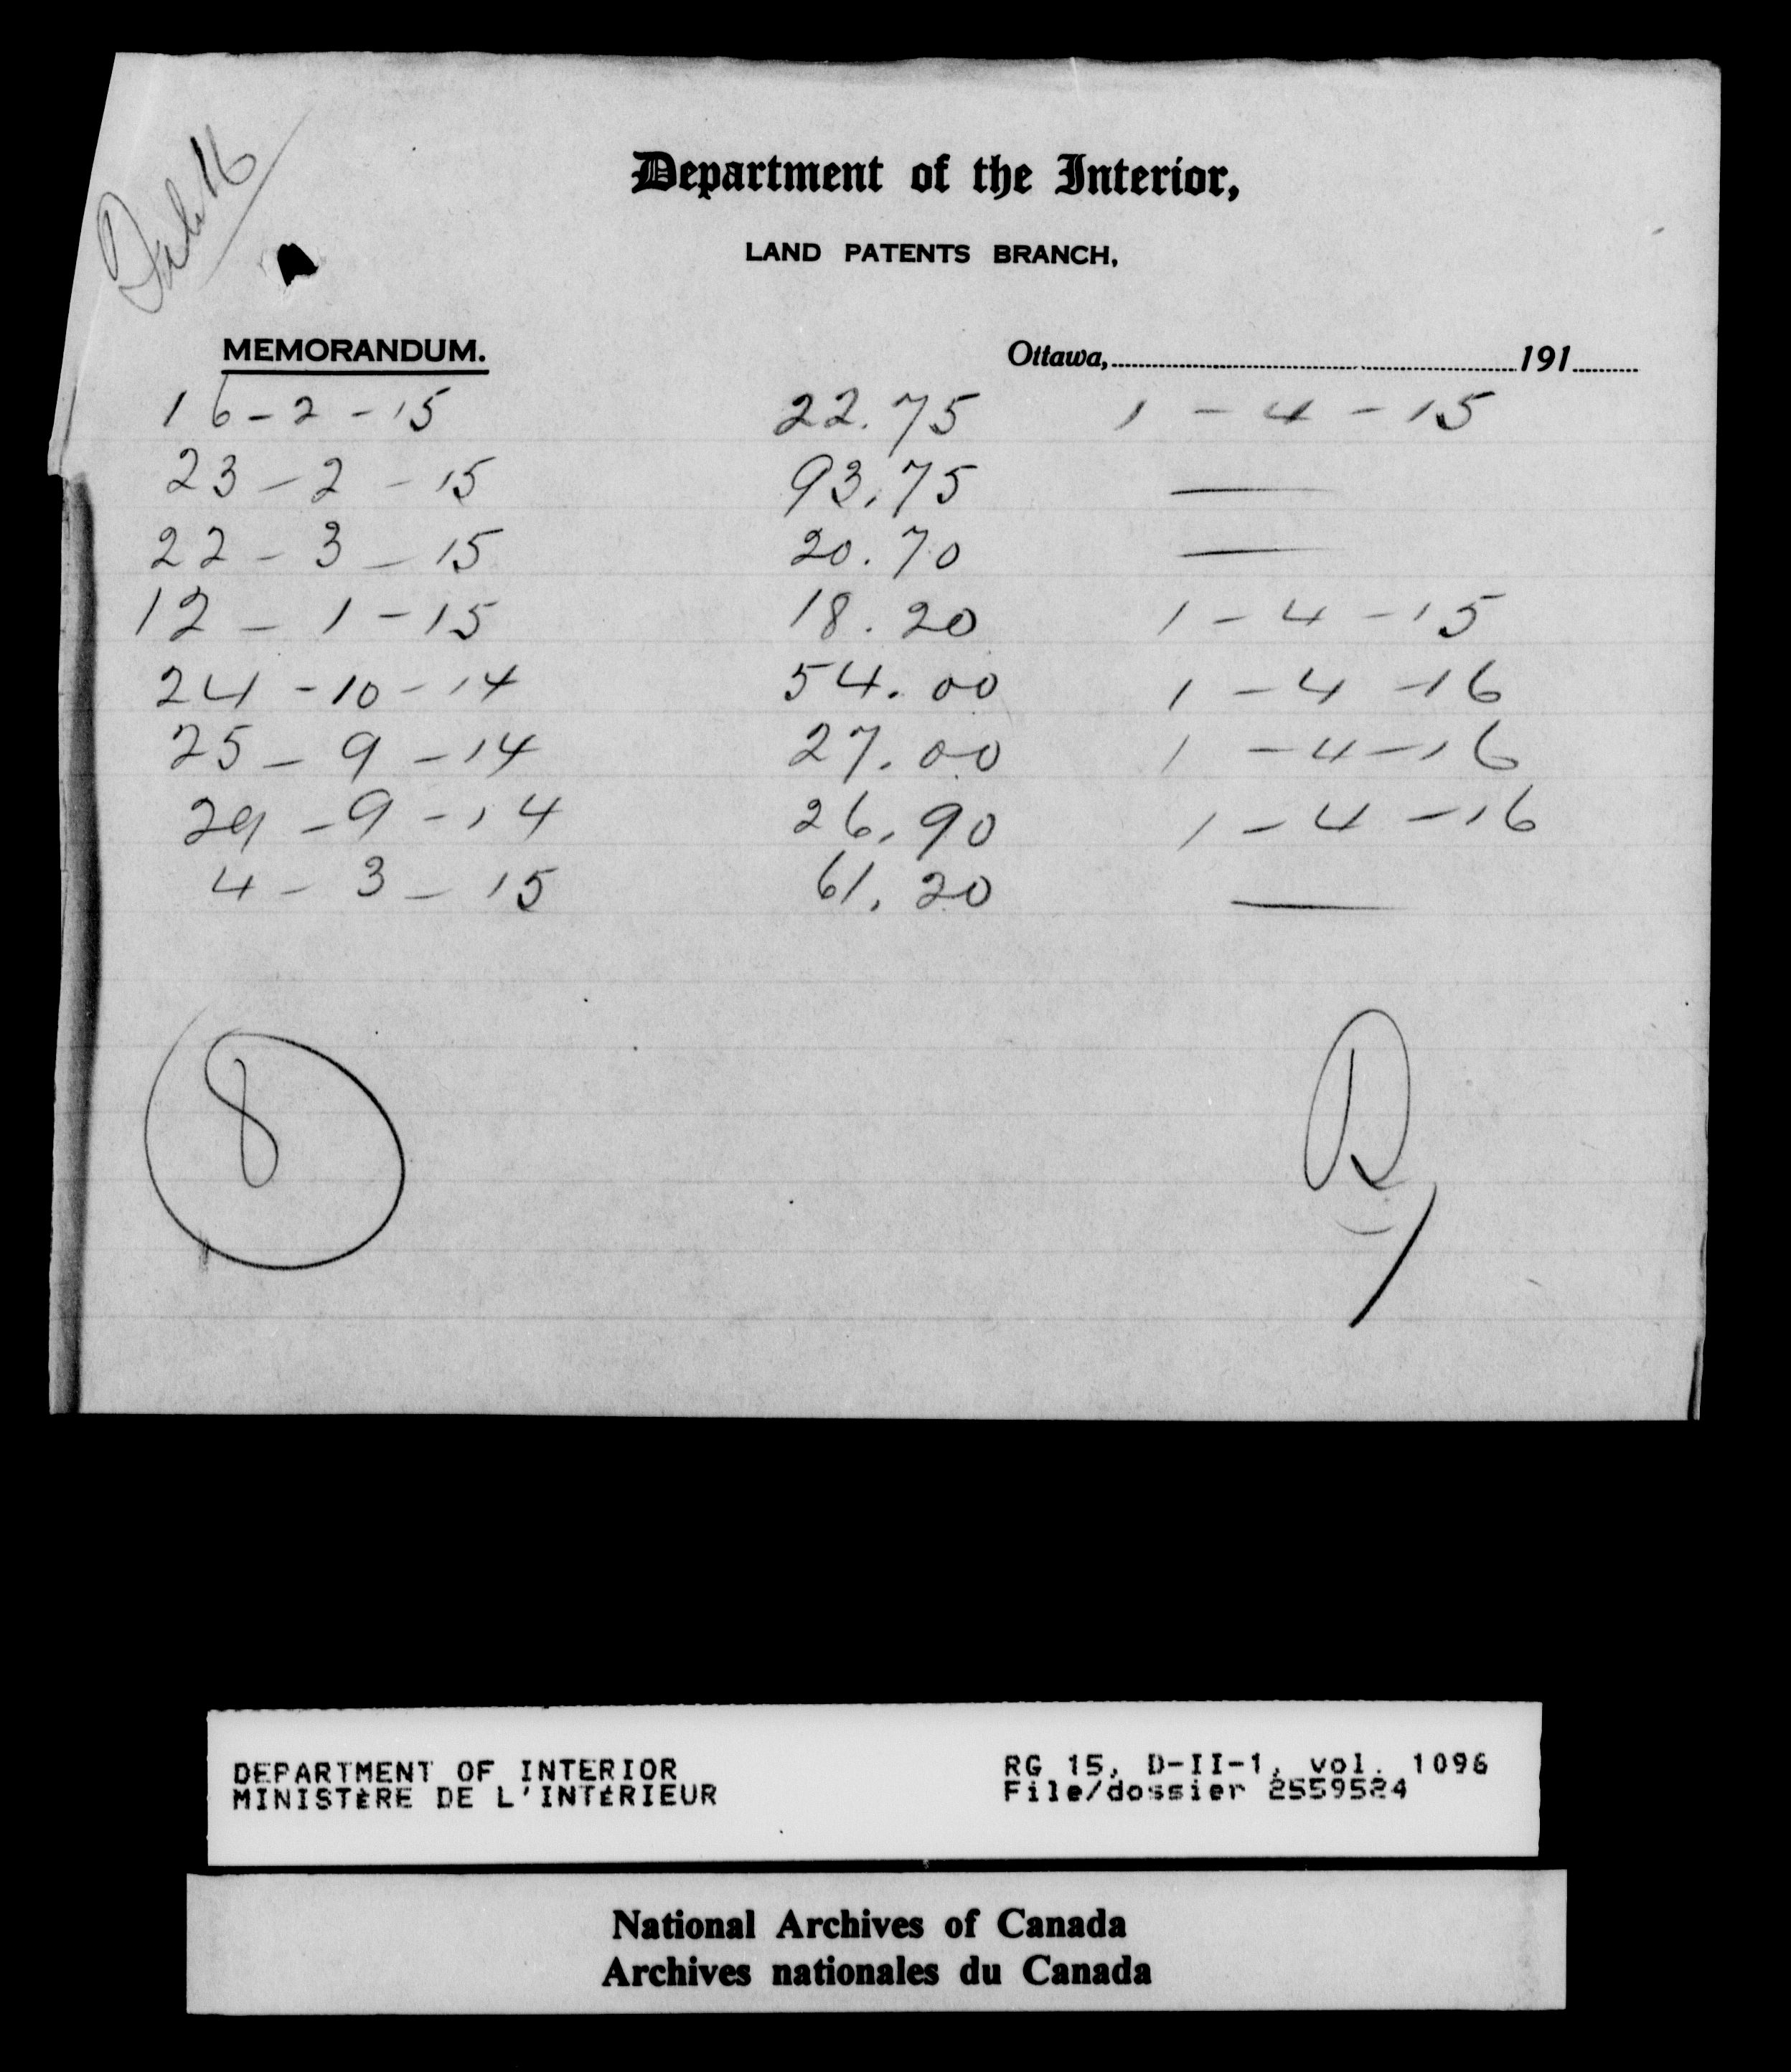 Department of the Interior,
LAND PATENTS BRANCH,
MEMORANDUM. Ottawa, 191
16-2-15 22.75 1-4-15
23-2-15 93.75 —
22-3-15 20.70 —
12-1-15 18.20 1-4-15
24-10-14 54.00 1-4-16
25-9-14 27.00 1-4-16
29-9-14 26.90 1-4-16
4-3-15 61.20 —
8
DEPARTMENT OF INTERIOR RG 15, D-II-1, vol. 1096
MINISTÈRE DE L'INTÉRIEUR File/dossier 2559524
National Archives of Canada
Archives nationales du Canada